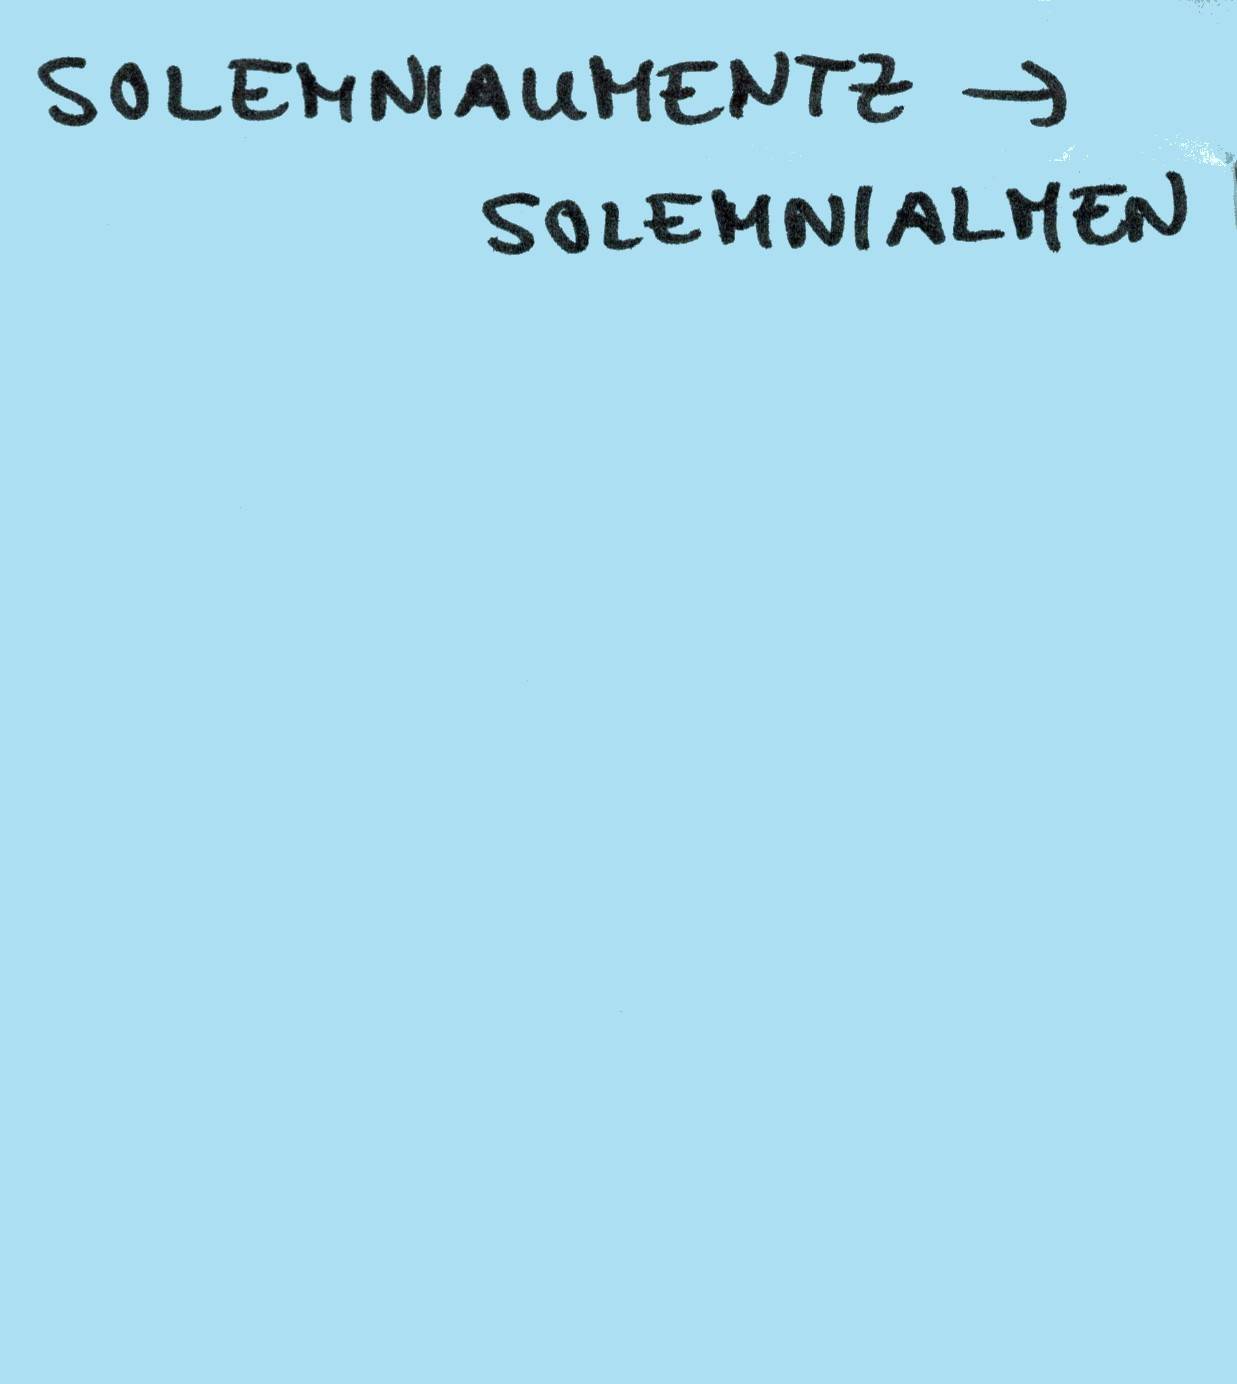 SOLEMNIAUMENTZ →
SOLEMNIALMEN